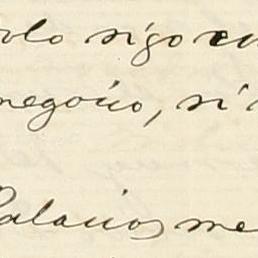 solo sigo en
negocio, si
Palacios me